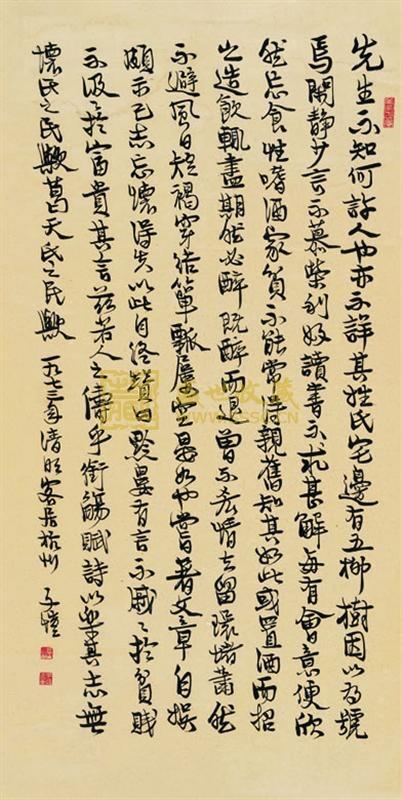 先生不知何許人也亦不詳其姓氏宅邊有五柳樹因以為號
焉閑静少言不慕榮利好讀書不求甚解每有會意便欣
然忘食性嗜酒家貧不能常得親舊知其如此或置酒而招
之造飲輒盡期在必醉既醉而退曾不吝情去留環堵蕭然
不避風日短褐穿結簞瓢屢空晏如也嘗著文章自娛
頗示己志忘懷得失以此自終贊曰黔婁有言不戚々於貧賤
不汲々於富貴其言茲若人之儔乎銜觴賦詩以樂其志無
懷氏之民歟葛天氏之民歟 一九七三年清明客居杭州 子愷
盛世收藏